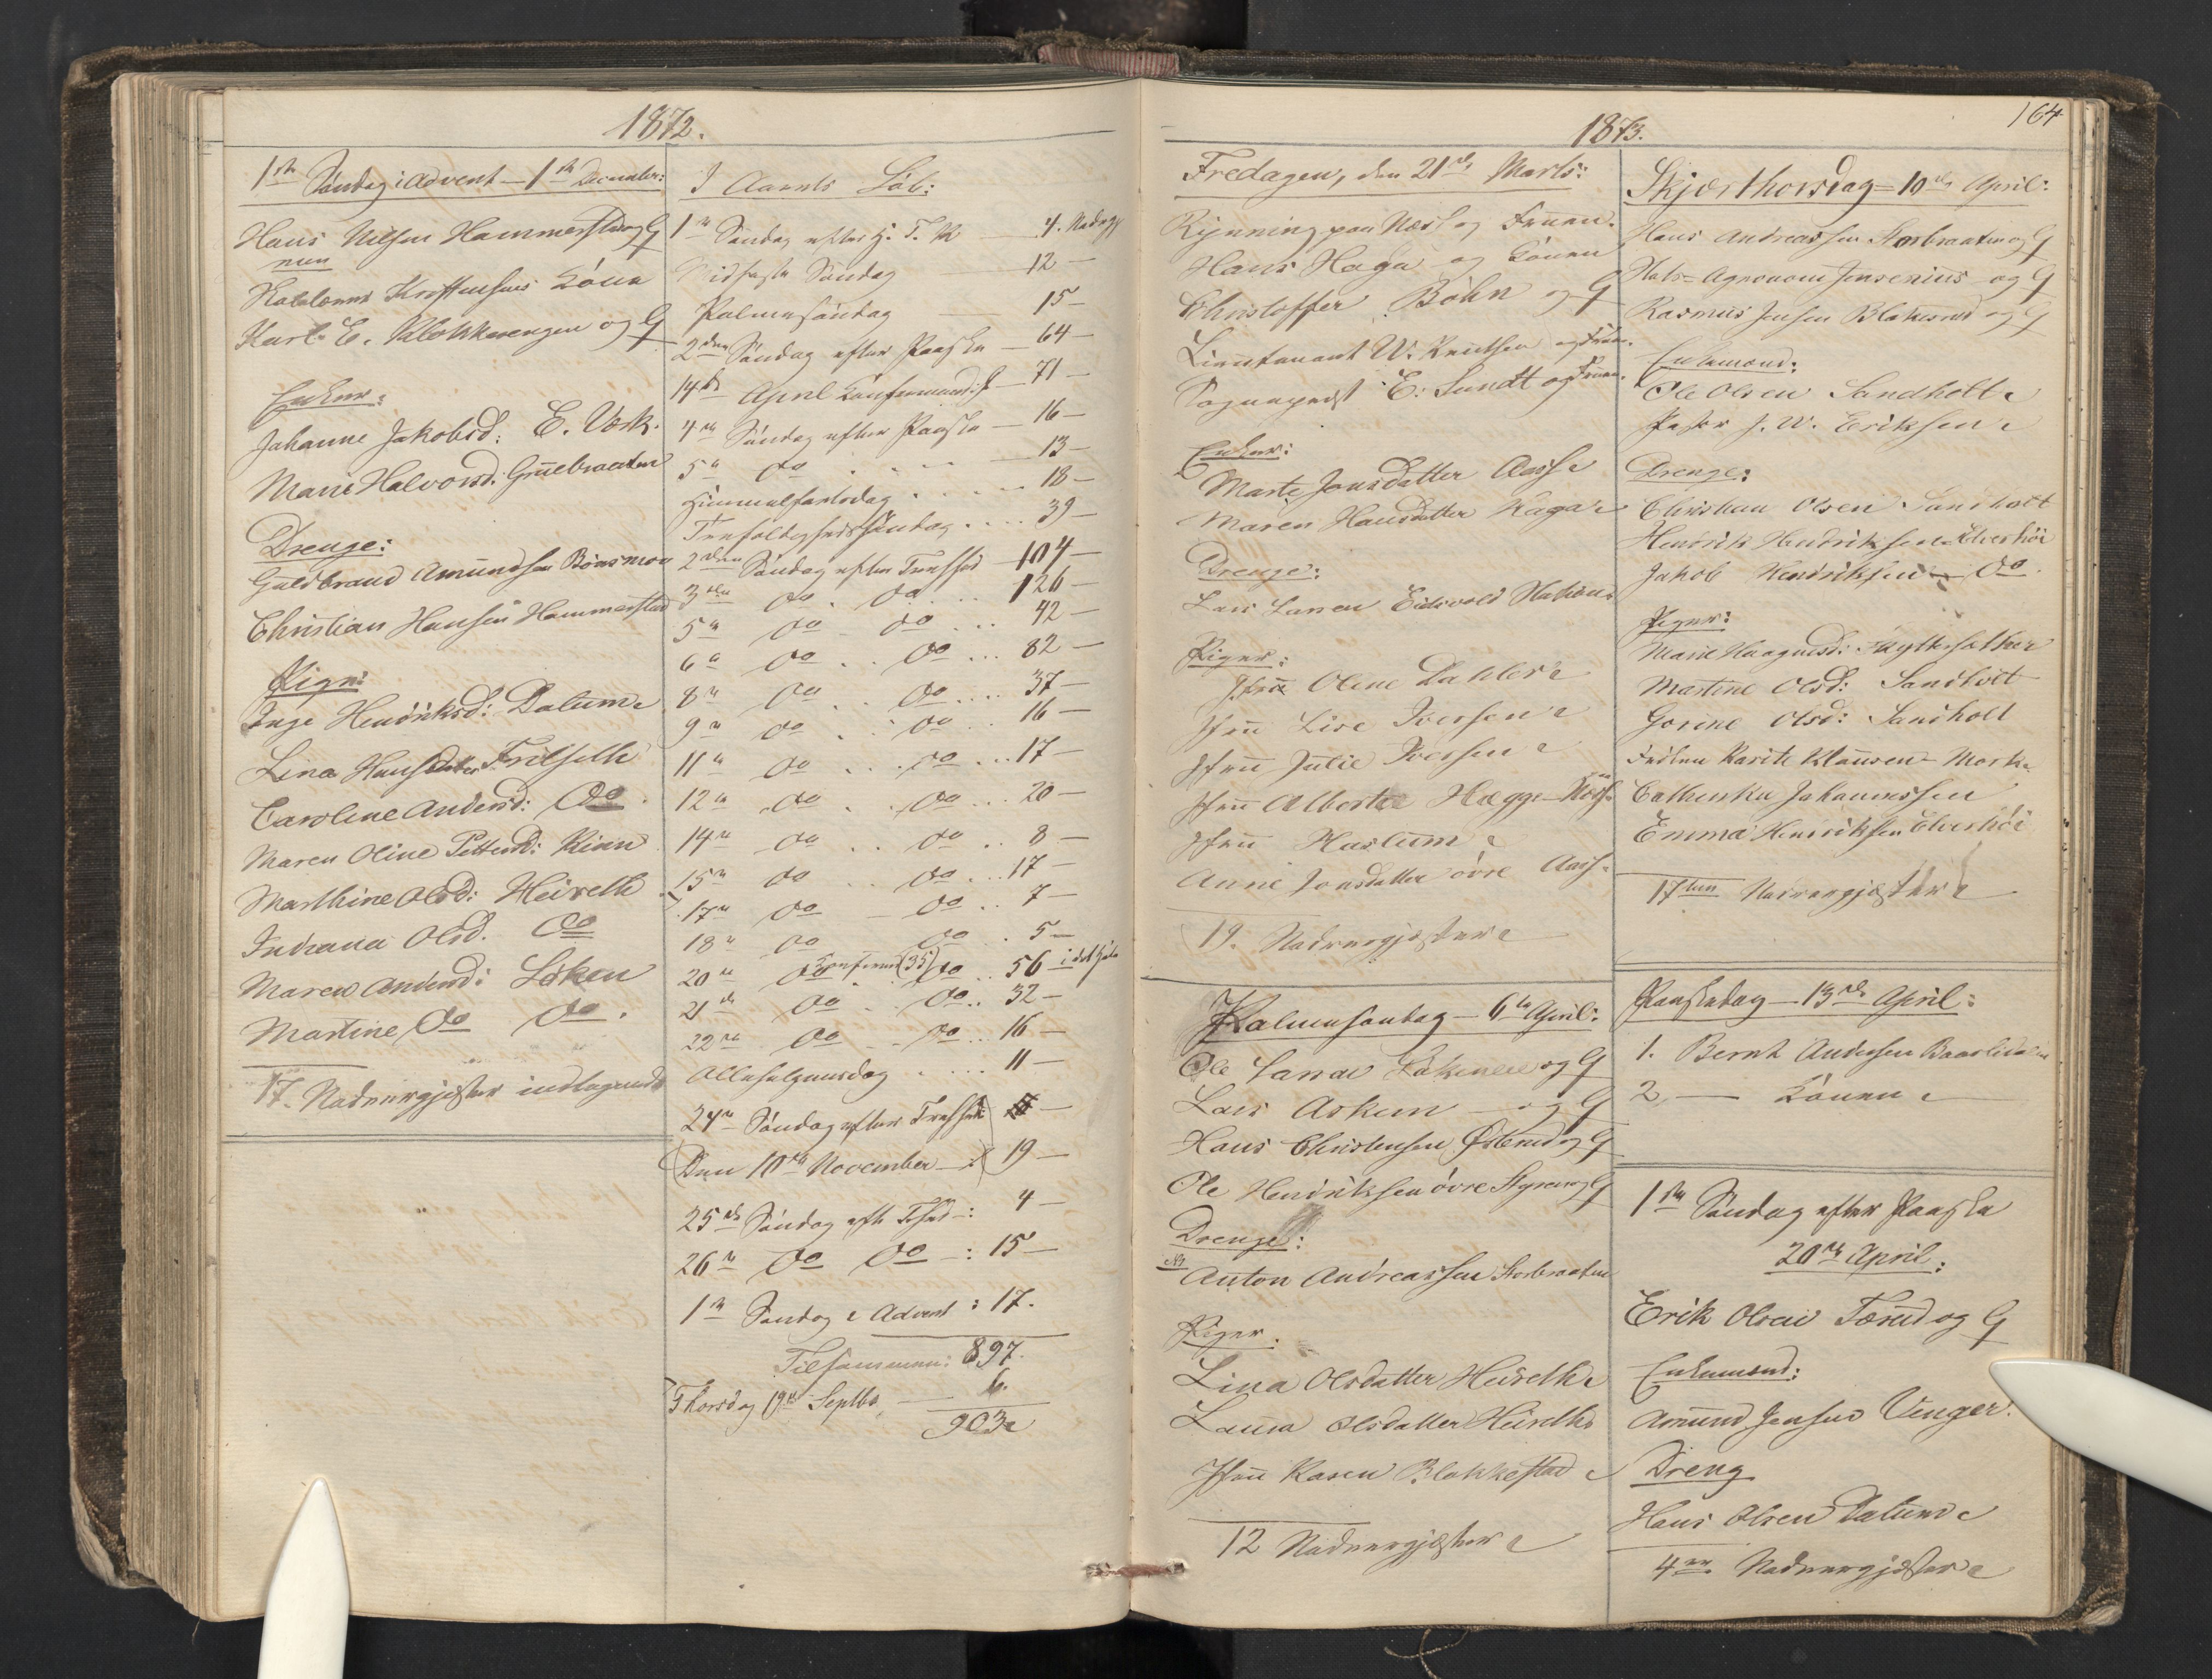 1872.
1ste Søndag i Advent - 1ste December:
Hans Nilsen Hammerstad og G
Karl E. Klokkerengen og G
Enker:
Johanne Jakobsd: E. Værk.
Marie Halvorsd: Gruebraaten
Drenge:
Guldbrand Amundsen Bønsmoen
Christian Hansen Hammerstad
Piger:
Inge Hendriksd: Dalum
Lina Hansdatter
Caroline Andersd: do
Maren Oline Pettersd: Rinn
Marthine Olsd: Heireth
Indiana Olsd. do
Maren Andersd: Løken
Martine do do.
17. Nadvergjester
I Aarets Løb:
1ste Søndag efter H. T. K. 4. Nadvgj
Midfaste Søndag 12 -
Palmesøndag 15 -
2den Søndag efter Paaske - 64 -
14de April Konfirmand: 71 -
4de Søndag efter Paaske - 16 -
5te do 13 -
Himmelfartsdag 18 -
Trefoldighedssøndag 39 -
2den Søndag efter Trefhed 104 -
3die do. do 126 -
5te do do 42 -
6te do do 82 -
8de do do 37 -
9de do do 16 -
11te do do 17 -
12te do do 20 -
14de do do 8 -
15de do do 17 -
17de do do 7 -
18de do do 5 -
20de do Konfirm (35) do 56 i det Hele
21de do do 32 -
22de do do 16 -
Allehelgensdag 11 -
24de Søndag efter Trefhed
Den 10de November 19 -
25de Søndag efter Trfhed: 4 -
26de do do -: 15 -
1ste Søndag i Advent: 17.
Tilsammen: 897.
Thorsdag 19de Septbr. 6.
903
1873.
164
Fredagen, den 21de Marts:
Rynning paa Næs og Fruen.
Hans Haga og Konen
Christoffer Bøhn og G
Lieutenant W. Knutsen og Fruen.
Sogneprest E: Sundt og Fruen.
Enker:
Marte Jonsdatter Aas
Maren Hansdatter Haga
Drenge:
Lars Larsen Eidsvold Station
Piger:
Jfru Oline Dahler
Jfru Lise Iversen
Jfru Julie Iversen
Jfru Albertie Hægge-Næs
Jfru Haslum
Anne Jonsdatter øvre Aas
19. Nadvergjester
Palmesøndag - 6te April:
Ole Larsen og G
Lars Askim - og G
Hans Christensen Østerud og G
Ole Hendriksen øvre Styren og G
Drenge:
Anton Andreassen Storbraaten
Piger.
Lina Olsdatter Heireth
Laura Olsdatter Heireth
Jfru Karen Blakkestad
12 Nadvergjester
Skjærthorsdag - 10de April:
Hans Andreassen Storbraaten og G
Agronom Jensenius - og G
Rasmus Jensen Blakkerud og G
Enkemænd:
Ole Olsen Sandholt
Peder J. W. Eriksen
Drenge:
Christian Olsen Sandholt
Hendrik Hendriksen Elverhøi
Jakob Hendriksen - do.
Piger:
Marie Haagensd:
Martine Olsd: Sandholt
Gorine Olsd: Sandholt
Frøken Karite Klausen - Mork
Cathinka Johannessen
Emma Henriksen Elverhøi
17ten Nadvergjester
Paaskedag - 13de April:
1. Bernt Andersen
2. - Konen
1ste Søndag efter Paaske
20de April:
Erik Olsen Tærud og G
Enkemænd:
Amund Jensen Venger.
Dreng
Hans Olsen Dalum
4re Nadvergjester